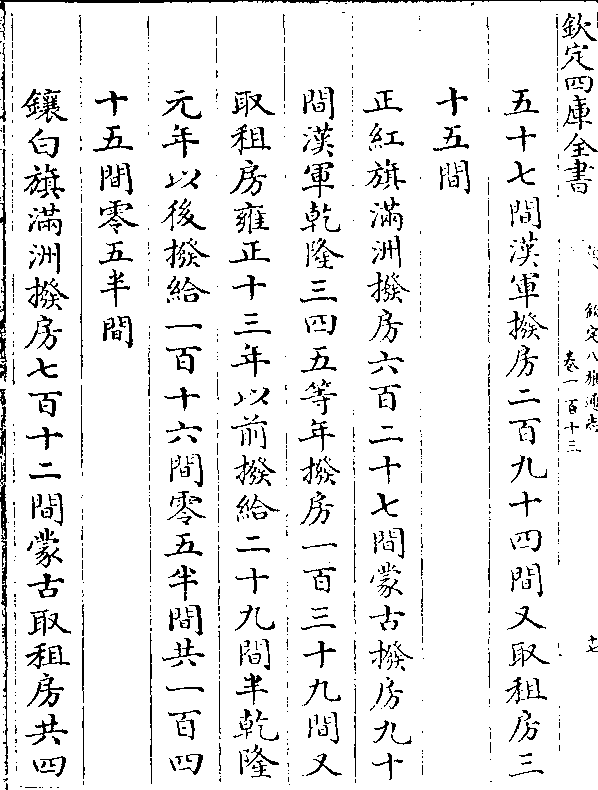 欽定四庫全書
欽定八旗通志
卷一百十三
十七
五十七間漢軍撥房二百九十四間又取租房三
十五間
正紅旗滿洲撥房六百二十七間蒙古撥房九十
間漢軍乾隆三四五等年撥房一百三十九間又
取租房雍正十三年以前撥給二十九間半乾隆
元年以後撥給一百十六間零五半間共一百四
十五間零五半間
鑲白旗滿洲撥房七百十二間蒙古取租房共四